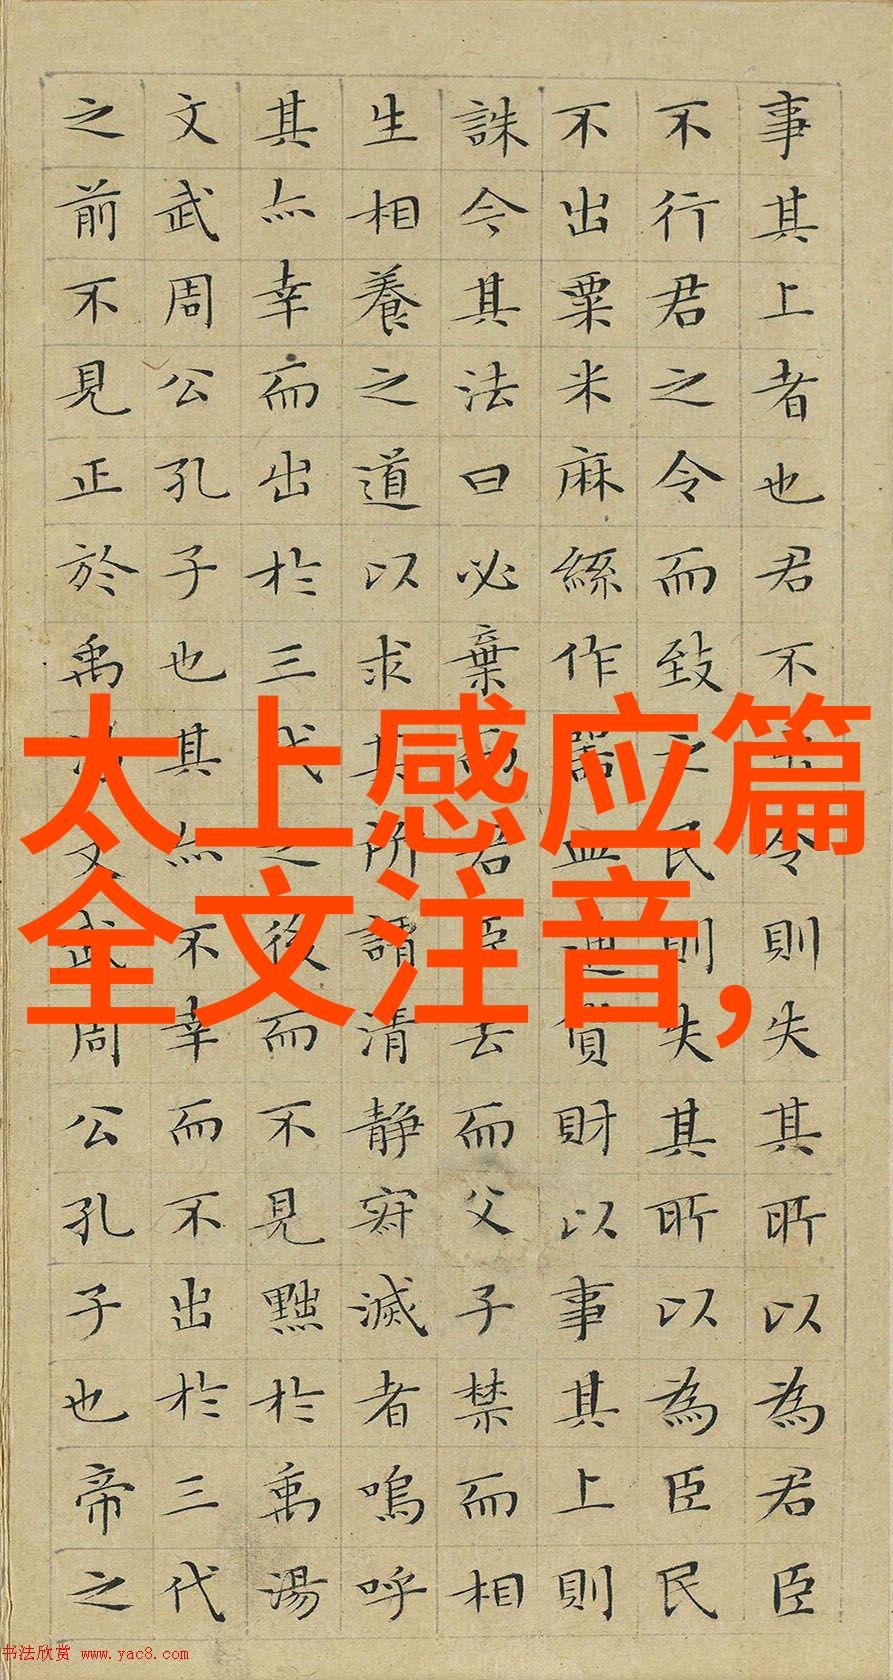 事其上者也君不令則失其所以為君臣
不行君之令而致之民則失其所以為臣民
不出粟米麻絲作器皿通貨財以事其上則
誅今其法曰必棄而君臣去而父子禁而相
生相養之道以求其所謂清静寂滅者嗚呼
其亦幸而出於三代之後而不見黜於禹湯
文武周公孔子也其亦不幸而不出於三代
之前不見正於禹湯文武周公孔子也帝之
太上感应篇
全文注音,
书法欣赏 www.yac8.com